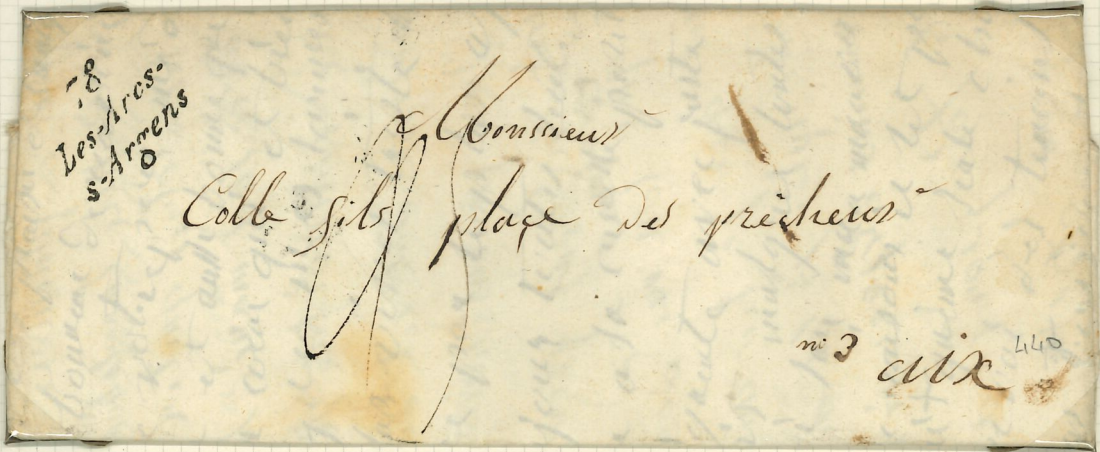 78
Les-Arcs-
s-Argens
Monssieur
Colle fils place Des prêcheur
n° 3
aix
440